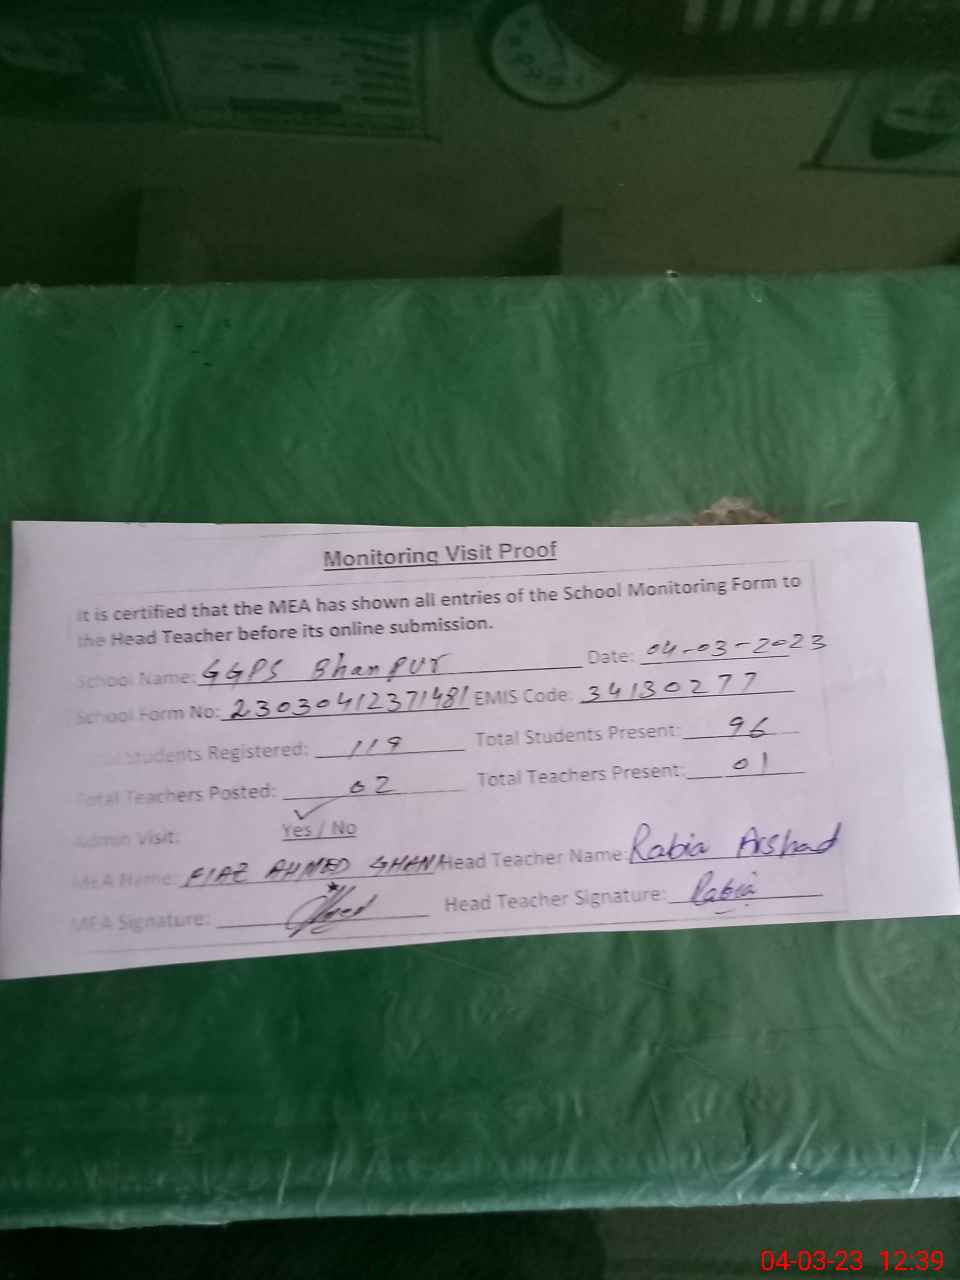 Monitoring Visit Proof
It is certified that the MEA has shown all entries of the School Monitoring Form to
the Head Teacher before its online submission.
School Name: GGPS Bhanpur Date: 04-03-2023
School Form No: 23030412371481 EMIS Code: 34130277
Students Registered: 119 Total Students Present: 96
Total Teachers Posted: 02 Total Teachers Present: 01
Admin Visit: Yes / No
MEA Name: FIAZ AHMED GHANI Head Teacher Name: Rabia Arshad
MEA Signature: Head Teacher Signature: Rabia
04-03-23 12:39